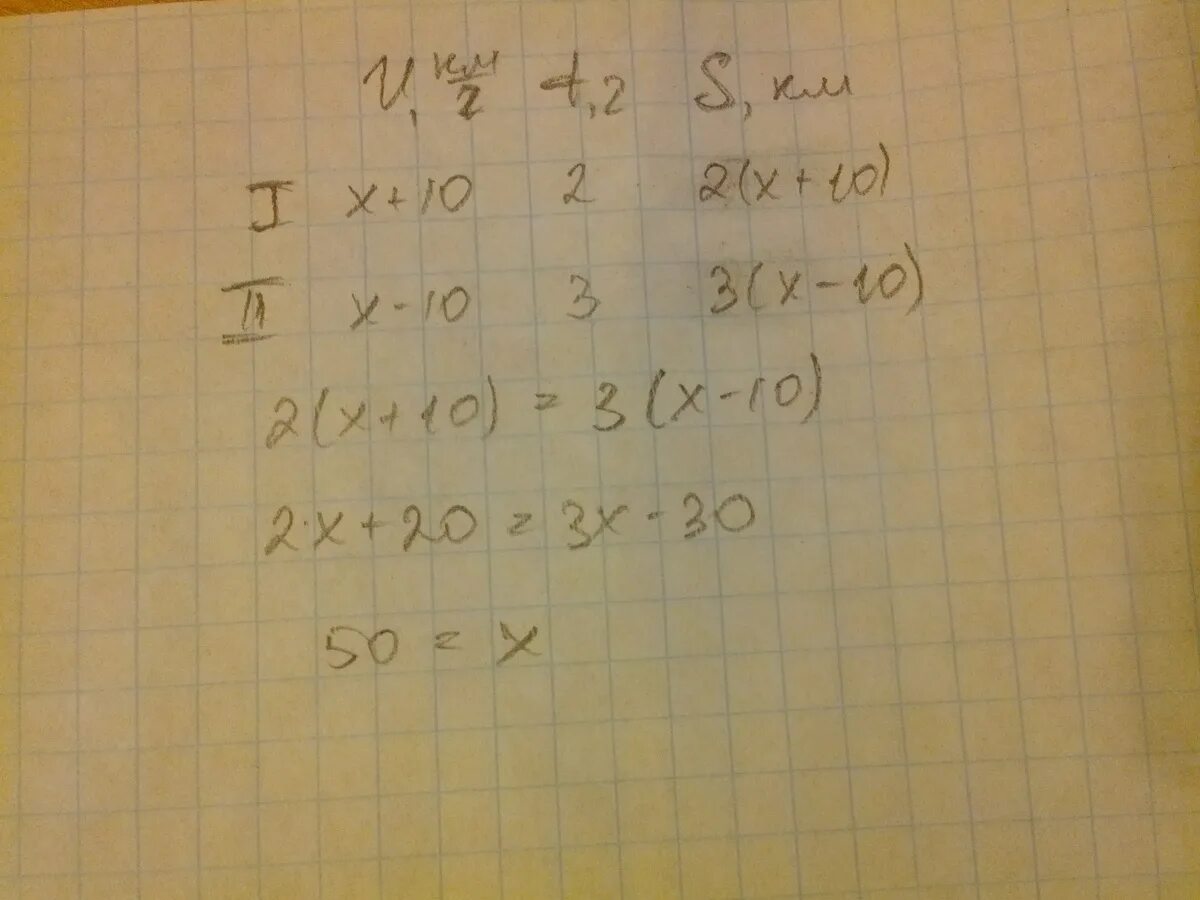 V, км/ч t, ч S, км
I x+10 2 2(x+10)
II x-10 3 3(x-10)
2(x+10) = 3(x-10)
2x+20 = 3x-30
50 = x